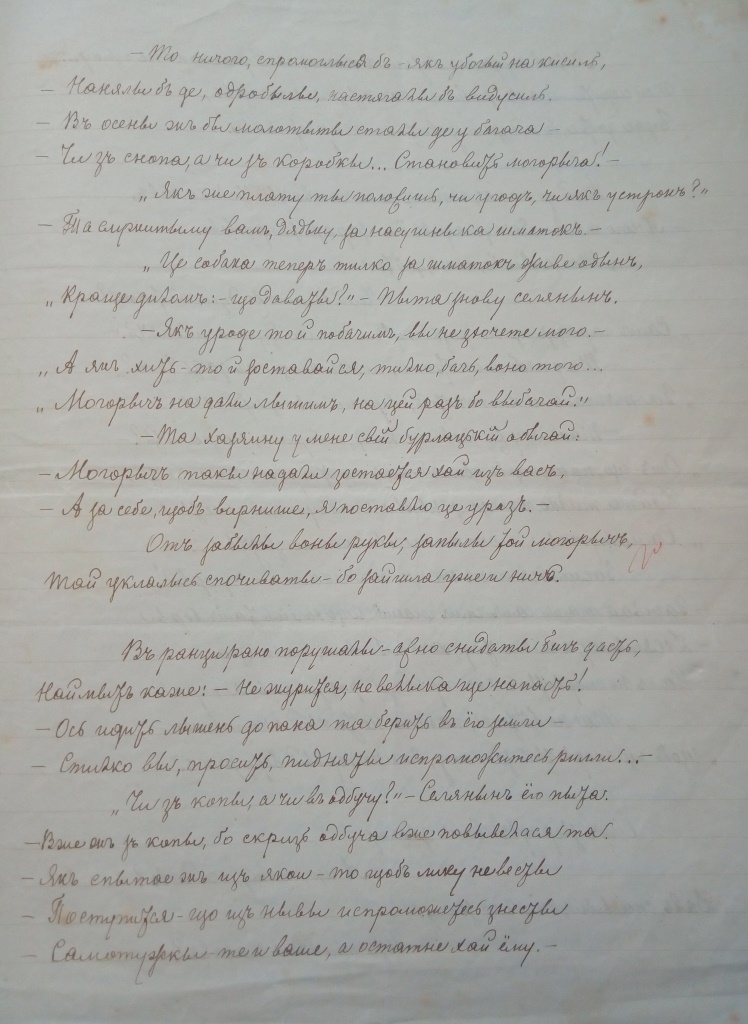 — То ничого, спромоглыся бъ - якъ убогый на кисиль,
— Нанялы бъ де, одробылы, настягалы бъ видусиль.
— Въ осены жъ бы молотыты сталы де у багача —
— Чи зъ снопа, а чи зъ коробкы... Становить могорыча! —
„Якъ же плату ты половишь, чи угодъ, чи якъ устронъ?"
— Та служитыму вамъ, дядьку, за насушныка шматокъ. —
„Це собака теперъ тилко за шматокъ живе одынъ,
„Краще диломъ: - що даваты?" - Пыта знову селянынъ.
— Якъ уроде той побачимъ, вы не зючете мого. —
„А якъ хить - то й зоставайся, тилко, бачь, воно того...
„Могорычъ на дали лышимъ, на цей разъ бо выбачай."
— Та хазяину у мене свій бурлацькій обычай:
— Могорычъ такы надали зостается хай изъ васъ,
— А за себе, щобъ вирнише, я поставлю це уразъ. —
Отъ забылы воны рукы, запылы той могорычъ,
Тай уклалысь спочиваты - бо зайшла уже и ничъ.
Въ ранци рано порушалы - абно снидаты Бигъ дасть,
Наймытъ каже: — Не журится, не велыка ще напасть!
— Ось идить лышень до пана та берить въ ёго земли —
— Стилко вы, просить, пидняты испроможитесь рилли... —
„Чи зъ копы, а чи въ одбучу?" - Селянынъ ёго пыта.
— Вже жъ зъ копы, бо скризь одбуча вже повывелася та.
— Якъ спытае жъ изъ якои - то щобъ лику не весты
— Поступится - що изъ нывы испроможетесь знесты
— Самотужкы - те и ваше, а остатне хай ёму. —